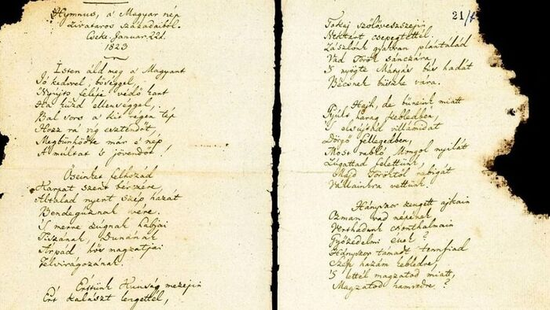 Hymnus, a' Magyar nép
zivataros századaiból.
Cseke, Januar. 22d.
1823
Isten áldd meg a' Magyart
Jó kedvvel, bőséggel,
Nyújts feléje védő kart
Ha küzd ellenséggel;
Bal sors a' kit régen tép
Hozz rá víg esztendőt
Megbűnhődte már e' nép
A' múltat 's jövendőt!
Őseinket felhozád
Kárpát szent bérczére,
Általad nyert szép hazát
Bendegúznak vére.
'S merre zúgnak habjai
Tiszának, Dunának,
Árpád hős magzatjai
Felvirágozának.
Értünk Kunság mezein
Ért kalászt lengettél,
21/
Tokaj szőlővesszein
Nektárt csepegtettél.
Zászlónk gyakran plántálád
Vad Török sánczára,
'S nyögte Mátyás bús hadát
Bécsnek büszke vára.
Hajh, de bűneink miatt
Gyúlt harag kebledben,
'S elsújtád villámidat
Dörgő fellegedben,
Most rabló Mongol nyilát
Zúgattad felettünk,
Majd Töröktől rabigát
Vállainkra vettünk.
Hányszor zengett ajkain
Ozman vad népének
Vert hadunk csonthalmain
Győzedelmi ének!
Hányszor támadt tenfiad
Szép hazám kebledre,
'S lettél magzatod miatt,
Magzatod hamvedre?